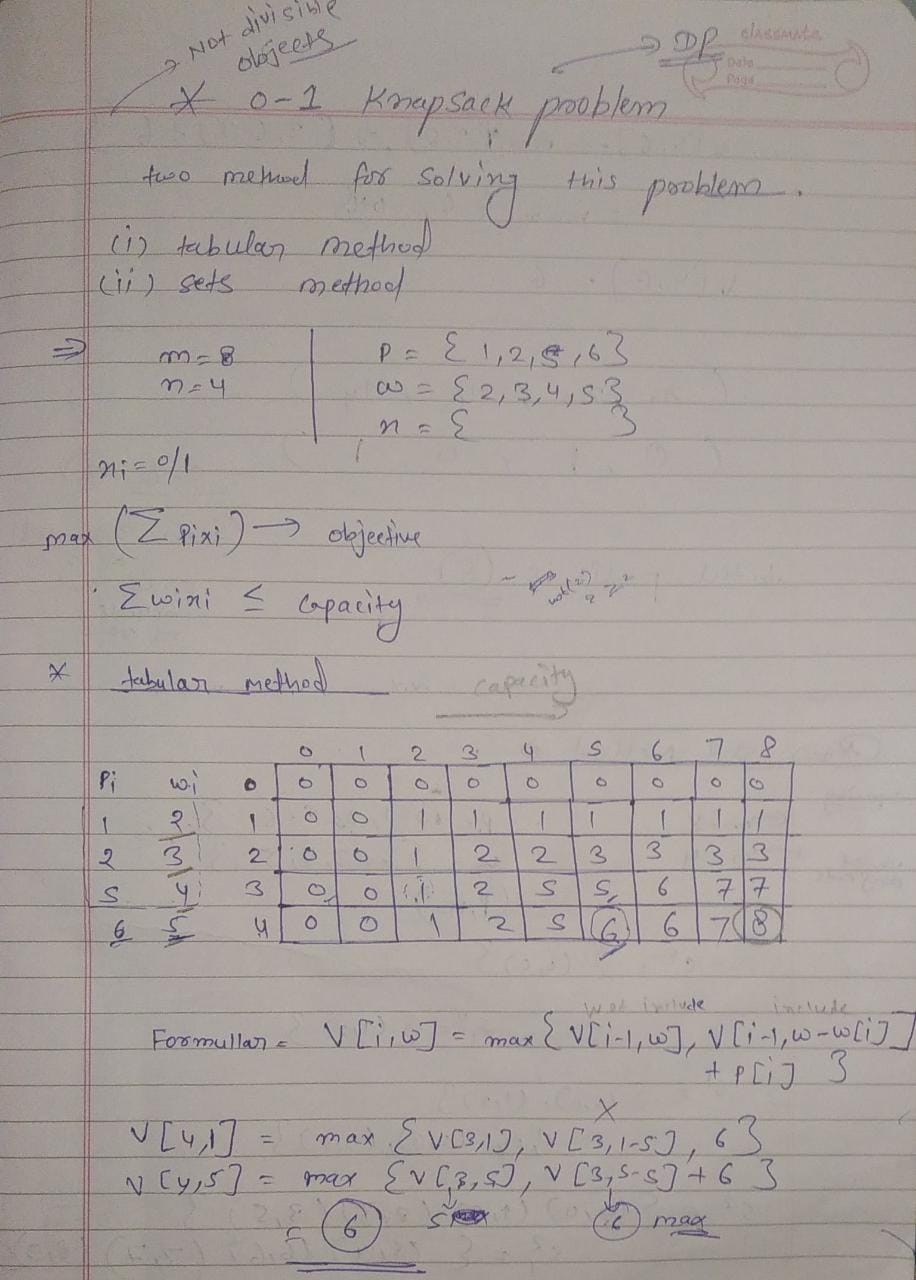 Not divisible
objects
DP
classmate
Date
Page
* 0-1 Knapsack problem
two method for solving this problem.
(i) tabular method
(ii) sets method
⇒ m=8 P = {1,2,5,6}
n=4 w = {2,3,4,5}
x = { }
xi = 0/1
max (Σ Pixi) → objective
Σwixi ≤ capacity
* tabular method
capacity
0 1 2 3 4 5 6 7 8
Pi wi 0 0 0 0 0 0 0 0 0 0
1 2 1 0 0 1 1 1 1 1 1 1
2 3 2 0 0 1 2 2 3 3 3 3
5 4 3 0 0 1 2 5 5 6 7 7
6 5 4 0 0 1 2 5 6 6 7 8
not include include
Formullar = V[i,w] = max{V[i-1,w], V[i-1,w-w[i]]
+ P[i] }
X
V[4,1] = max {V[3,1], V[3,1-5], 6}
V[4,5] = max {V[3,5], V[3,5-5] + 6}
= 6 5 6 max